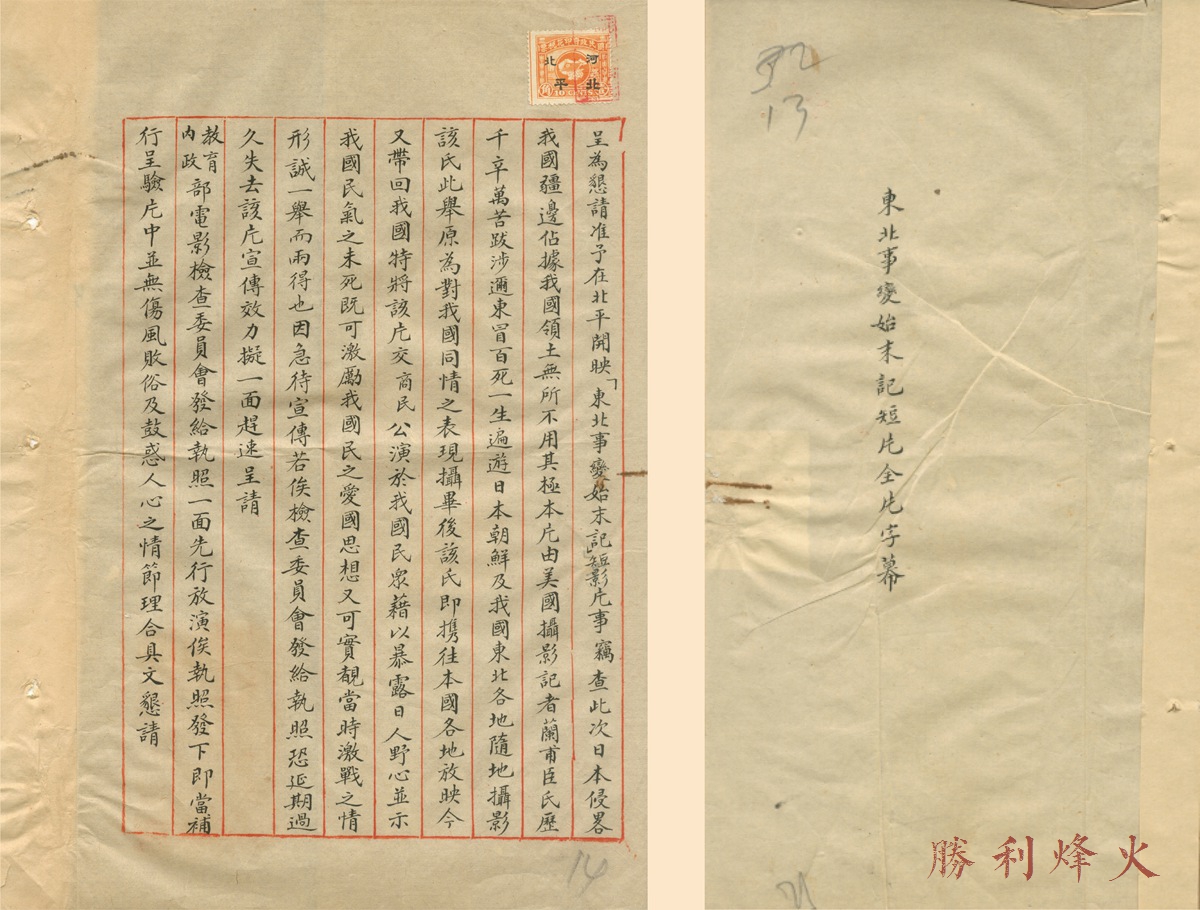 東北事變始末記短片全片字幕
32
13
勝利烽火
河北
北平
呈為懇請准予在北平開映「東北事變始末記」短影片事竊查此次日本侵畧
我國疆邊佔據我國領土無所不用其極本片由美國攝影記者蘭甫臣氏歷
千辛萬苦跋涉邇東冒百死一生遍遊日本朝鮮及我國東北各地隨地攝影
該氏此舉原為對我國同情之表現攝畢後該氏即携往本國各地放映今
又帶回我國特將該片交商民公演於我國民眾藉以暴露日人野心並示
我國民氣之未死既可激勵我國民之愛國思想又可實覩當時激戰之情
形誠一舉而兩得也因急待宣傳若俟檢查委員會發給執照恐延期過
久失去該片宣傳效力擬一面趕速呈請
教育
內政
部電影檢查委員會發給執照一面先行放演俟執照發下即當補
行呈驗片中並無傷風敗俗及鼓惑人心之情節理合具文懇請
14